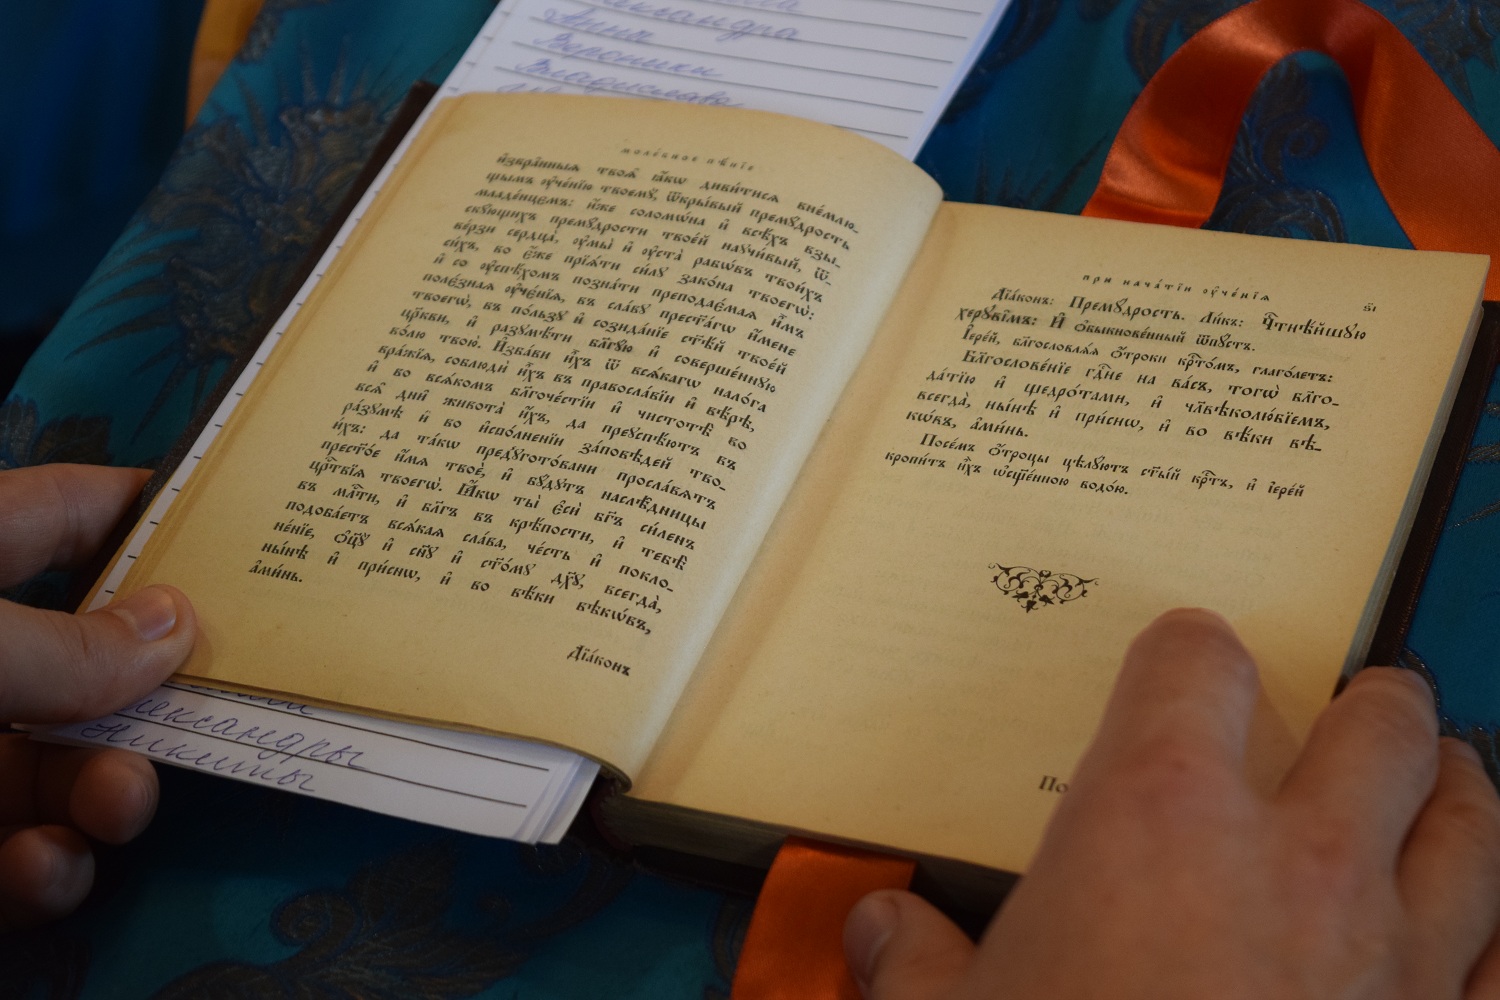 Александра
Анны
Вероники
Владислава
моле́бное пѣ́нїе
и҆збра̑нныѧ твоѧ̑ ꙗ҆́кѡ диви́тисѧ вне́млю-
щымъ ᲂу҆че́нїю твоемꙋ̀, ѿкры́вый премꙋ́дрость
младе́нцємъ: и҆́же соломѡ́на и҆ всѣ́хъ взы́-
скꙋющихъ премꙋ́дрости твоеѧ̀ наꙋчи́вый, ѿ-
ве́рзи сердца̀, ᲂу҆мы̀ и҆ ᲂу҆ста̀ рабѡ́въ твои́хъ
си́хъ, во є҆́же прїѧ́ти си́лꙋ зако́на твоегѡ̀:
и҆ со ᲂу҆спѣ́хомъ позна́ти преподае́маѧ и҆̀мъ
полє́знаѧ ᲂу҆чє́нїѧ, въ сла́вꙋ прест҃а́гѡ и҆́мене
твоегѡ̀, въ по́льзꙋ и҆ созида́нїе ст҃ѣ́й твоеѧ̀
цр҃кви, и҆ разꙋмѣ́ти бл҃гꙋ́ю и҆ соверше́ннꙋю
во́лю твою̀. И҆зба́ви и҆̀хъ ѿ всѧ́кагѡ нало́га
вра́жїѧ, соблюдѝ и҆̀хъ въ правосла́вїи и҆ вѣ́рѣ,
и҆ во всѧ́комъ бл҃гоче́стїи и҆ чистотѣ̀ во
всѧ̑ дни̑ живота̀ и҆́хъ, да преꙋспѣ́ютъ въ
ра́зꙋмѣ и҆ во и҆сполне́нїи за́повѣдей тво-
и́хъ: да та́кѡ предꙋгото́вани просла́вѧтъ
прест҃о́е и҆́мѧ твоѐ, и҆ бꙋ́дꙋтъ наслѣ́дницы
црⷭ҇твїѧ твоегѡ̀. Ꙗ҆́кѡ ты̀ є҆сѝ бг҃ъ си́ленъ
въ млⷭ҇ти, и҆ бл҃гъ въ крѣ́пости, и҆ тебѣ̀
подоба́етъ всѧ́каѧ сла́ва, че́сть и҆ покло-
не́нїе, ѻ҆ц҃ꙋ̀ и҆ сн҃ꙋ и҆ ст҃о́мꙋ дх҃ꙋ, всегда̀,
ны́нѣ и҆ при́снѡ, и҆ во вѣ́ки вѣкѡ́въ,
а҆ми́нь.
Дїа́конъ
Александры
Никиты
при нача́тїи ᲂу҆че́нїѧ
Дїа́конъ: Премꙋ́дрость. Ли́къ: Чⷭ҇тнѣ́йшꙋю
херꙋві̑мъ: И҆ ѻ҆быкнове́нный ѿпꙋ́стъ.
І҆ере́й, бл҃гословлѧ́ѧ ѻ҆́троки крⷭ҇то́мъ, глаго́летъ:
Бл҃гослове́нїе гдⷭ҇не на ва́съ, тогѡ̀ бл҃го-
да́тїю и҆ щедро́тами, и҆ чл҃вѣколю́бїемъ,
всегда̀, ны́нѣ и҆ при́снѡ, и҆ во вѣ́ки вѣ-
кѡ́въ, а҆ми́нь.
Посе́мъ ѻ҆́троцы цѣлꙋ́ютъ ст҃ы́й крⷭ҇тъ, и҆ і҆ере́й
кропи́тъ и҆̀хъ ѡ҆сщ҃е́нною водо́ю.